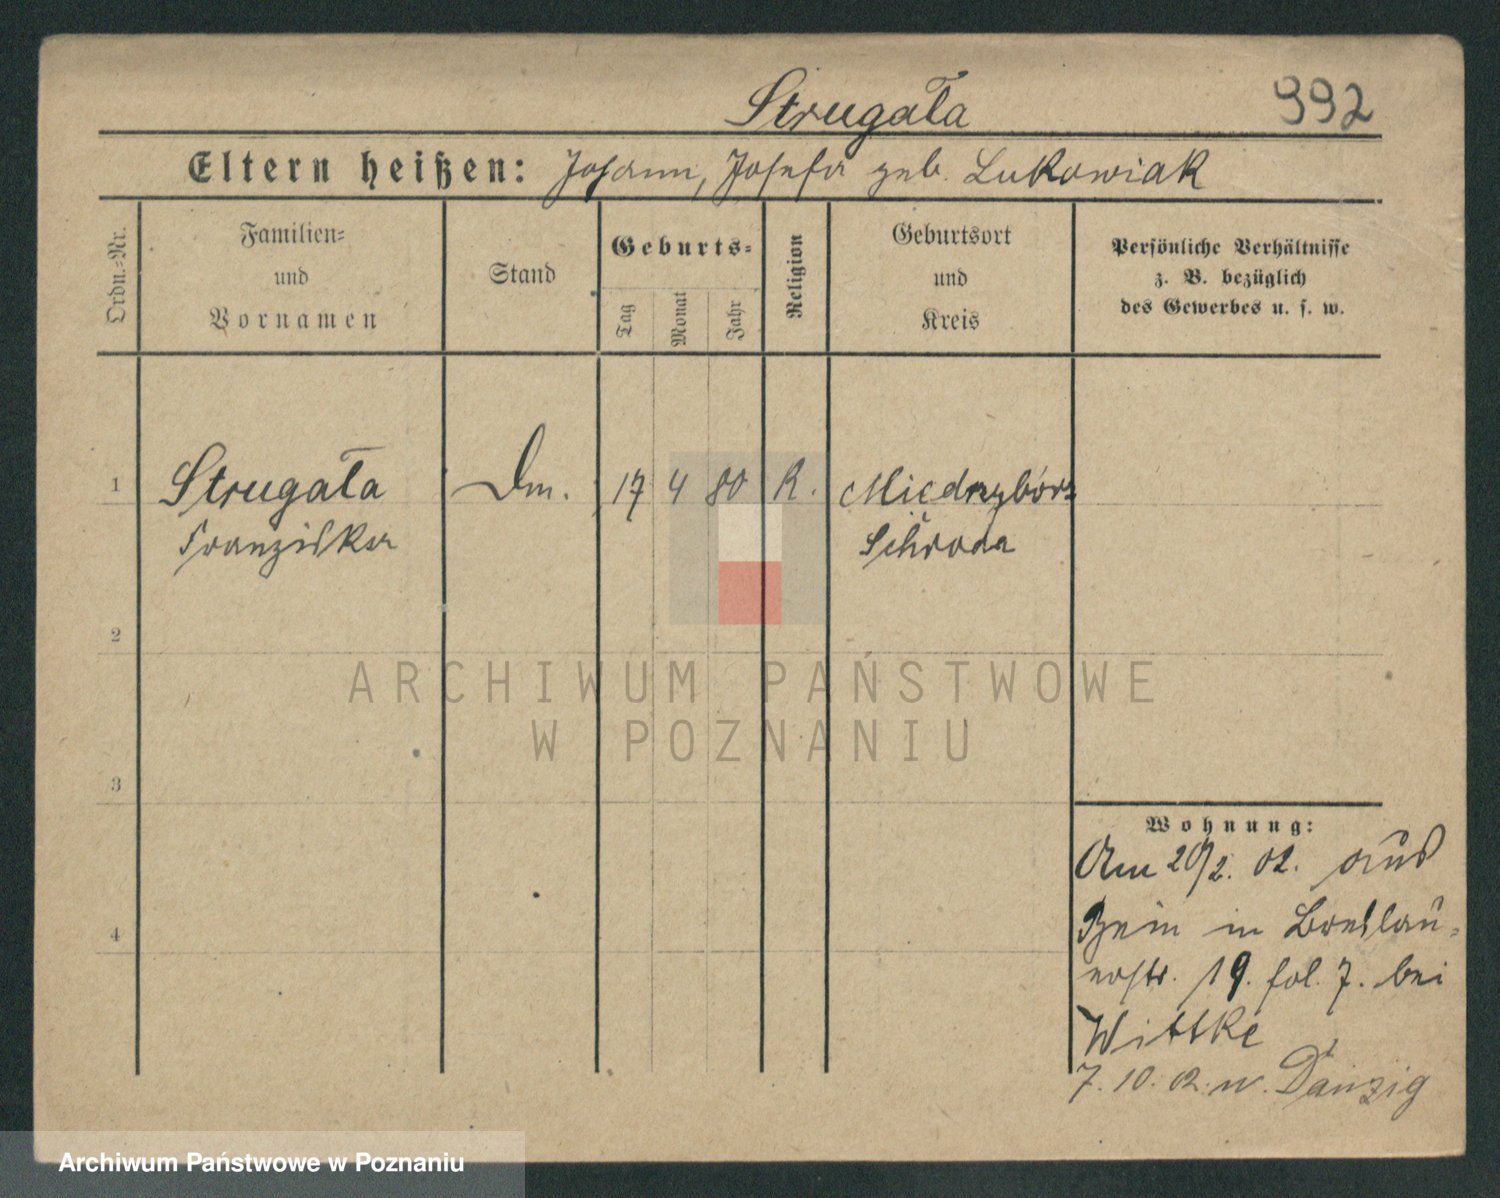 Strugała 992
Eltern heißen: Johann, Josefa geb. Lukowiak
Ordn.-Nr.
Familien-
und
Vornamen
Stand
Geburts-
Tag
Monat
Jahr
Religion
Geburtsort
und
Kreis
Persönliche Verhältnisse
z. B. bezüglich
des Gewerbes u. s. w.
1 Strugała Dm. 17 4 80 K. Miedzybórz
Franziska Schroda
2
3
4
Wohnung:
Am 20/2. 02. aus
in Breslau-
erstr. 19. fol. 7. bei
Wittke
7. 10. 02. n. Danzig
ARCHIWUM PAŃSTWOWE
W POZNANIU
Archiwum Państwowe w Poznaniu